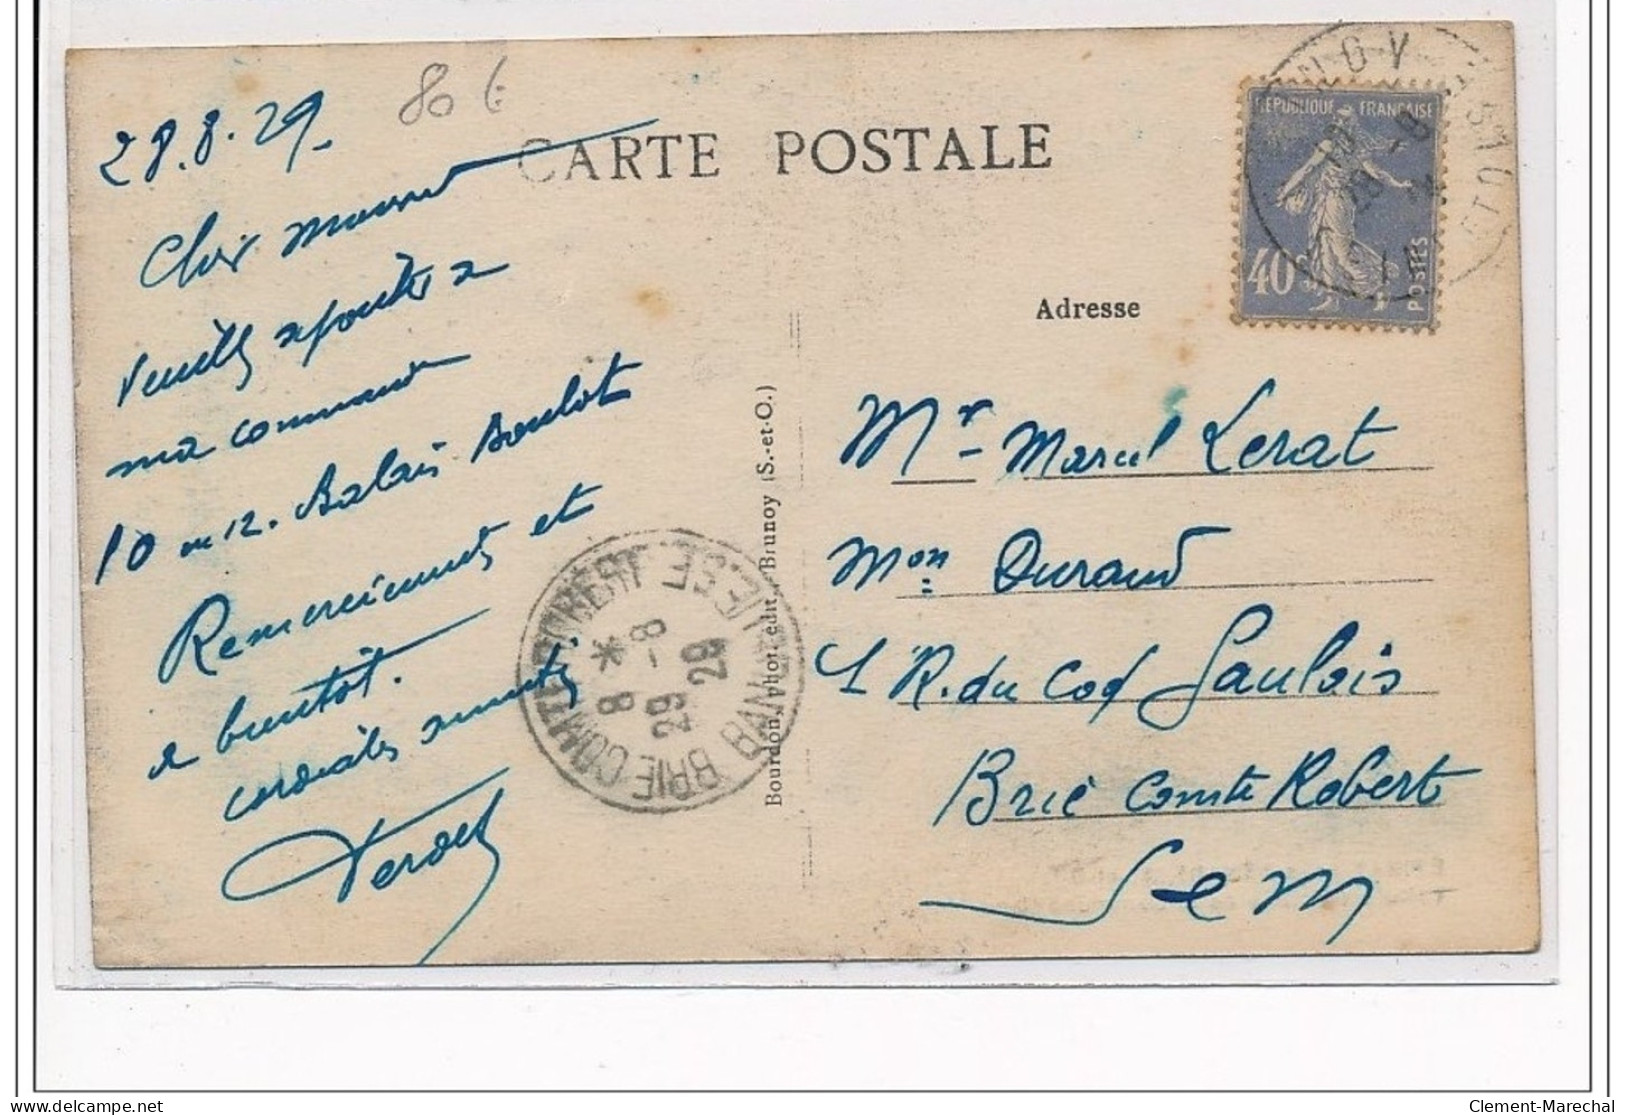 28.8.29.
80 €
CARTE POSTALE
Cher Monsieur
veuillez ajouter a
ma commande
10 ou 12. Balais Bouleot
Remerciements et
a bientôt.
cordiales
Verdel
Bourdon, phot. édit. Brunoy (S.-et-O.)
BRIE COMTE ROBERT
Sne ET MARNE
* 8-
29 29
8
REPUBLIQUE FRANÇAISE
40c
POSTES
Adresse
Mr Marcel Lerat
Mon Durand
4 R. du Coq Gaulois
Brie Comte Robert
S et M
Clement-Marechal
delcampe.net